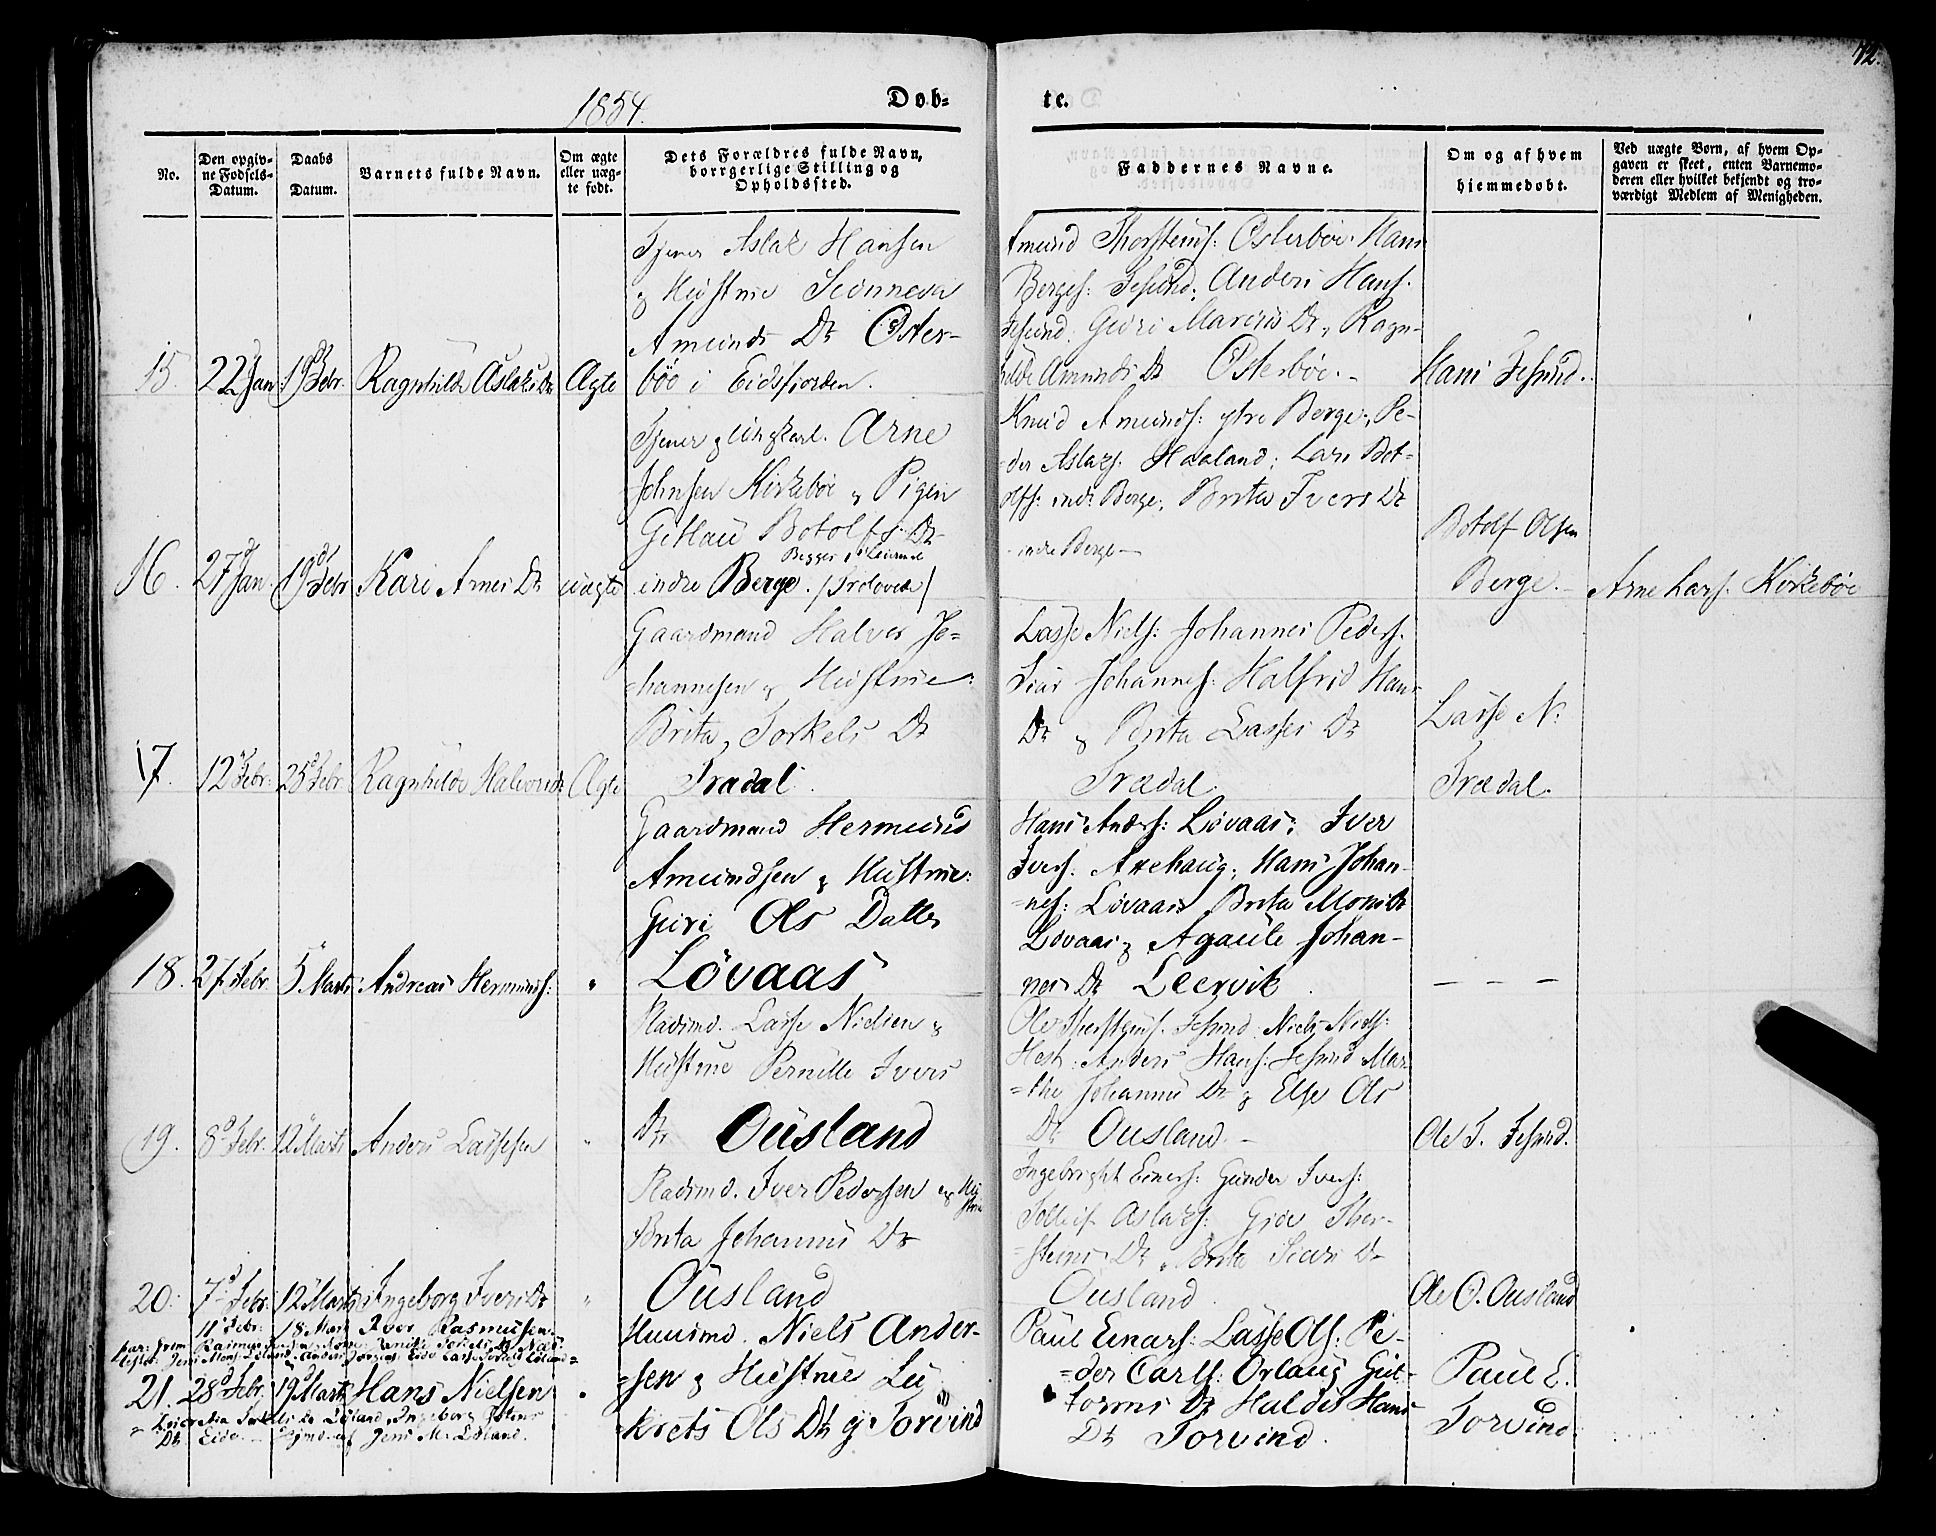 72.
1854.
Døb-
te.
No.
Den opgiv-
ne Fødsels-
Datum.
Daabs
Datum.
Barnets fulde Navn.
Om ægte
eller uæg-
te født.
Dets Forældres fulde Navn,
borgerlige Stilling og
Opholdssted.
Faddernes Navne.
Om og af hvem
hjemmedøbt.
Ved uægte Børn, af hvem Op-
gaven er skeet, enten Barnemo-
deren eller hvilket bekjendt og tro-
værdigt Medlem af Menigheden.
15.
22 Jan:
19 Febr.
Ragnhilde Aslaks Dr
Ægte
Tjener Aslak Hansen
& Hustrue
Amunds Dr Oster-
bøe i Eidsfjorden.
Amund Thorsteins: Osterbøe. Hans
Berges: Tesund; Anders Hans.
Tesund. Guri Marcus Dr, Ragn-
hilde Amunds Dr Osterbøe.-
Hans Tesund.
16.
27 Jan.
19 Febr
Kari Arnes Dr
uægte
Tjener & Ungkarl. Arne
Johnsen Kirkebøe & Pigen
Botolfs Dr
indre Berge. /Trolovede/
Knud Amunds: ytre Berge; Pe-
der Aslaks. Haaland; Lars Bot-
olfs: indr Berge; Brita Ivers Dr
indre Berge-
Botolf Olsen
Berge.-
Arne Lars. Kirkebøe
17.
12 Febr:
25 Febr
Ragnhilde Halvors Dr
Ægte
Gaardmand Halvor Jo-
hannesen & Hustrue:
Brita Torkels Dr
Trædal.
Lasse Niels: Johannes Peders.
Johannes: Halfrid Hans
Dr & Brita Lasses Dr
Trædal.
Lasse N:
Trædal.
18.
27 Febr.
5 Marts
Andreas Hermunds:
"
Gaardmand Hermund
Amundsen & Hustrue:
Guri Ols Datter
Løvaas
Hans Anders: Løvaas; Iver
Ivers: Arehaug; Hans Johan-
nes: Løvaas Brita Monsdr
Løvaas & Agaute Johan-
nes Dr Leervik.
- - -
19.
8 Febr.
12 Marts
Anders Lassesen
"
Pladsmd. Lasse Nielsen &
Hustrue Pernille Ivers
Dr Ousland
Ole Thorsteins. Tesund. Niels Niels:
Anders Hans: Tesund Mar-
the Johannes Dr & Else Ols
Dr Ousland.-
Ole T. Tesund.
20.
7 Febr.
12 Marts
Ingeborg Ivers Dr
"
Pladsmd. Iver Pedersen & Hu
strue
Brita Johannes Dr
Ousland
Ingebright Einers: Gunder Ivers:
Tolleif Aslaks: Gjøe Thor-
steins Dr, Brita Dr
Ousland
Ole O. Ousland
11 Febr:
18 Marts
Iver Rasmussen.
21.
28 Febr.
19 Marts
Hans Nielsen
"
Huusmd. Niels Ander-
sen & Hustrue Lu
krets Ols Dr g Torvind
Paul Einars: Lasse Ols: Pe-
der Carls: Orlaug Gut-
torms Dr Haldis Hans
Dr Torvind.
Paul E.
Torvind.
Dr Eide - af Jens M. Løland.